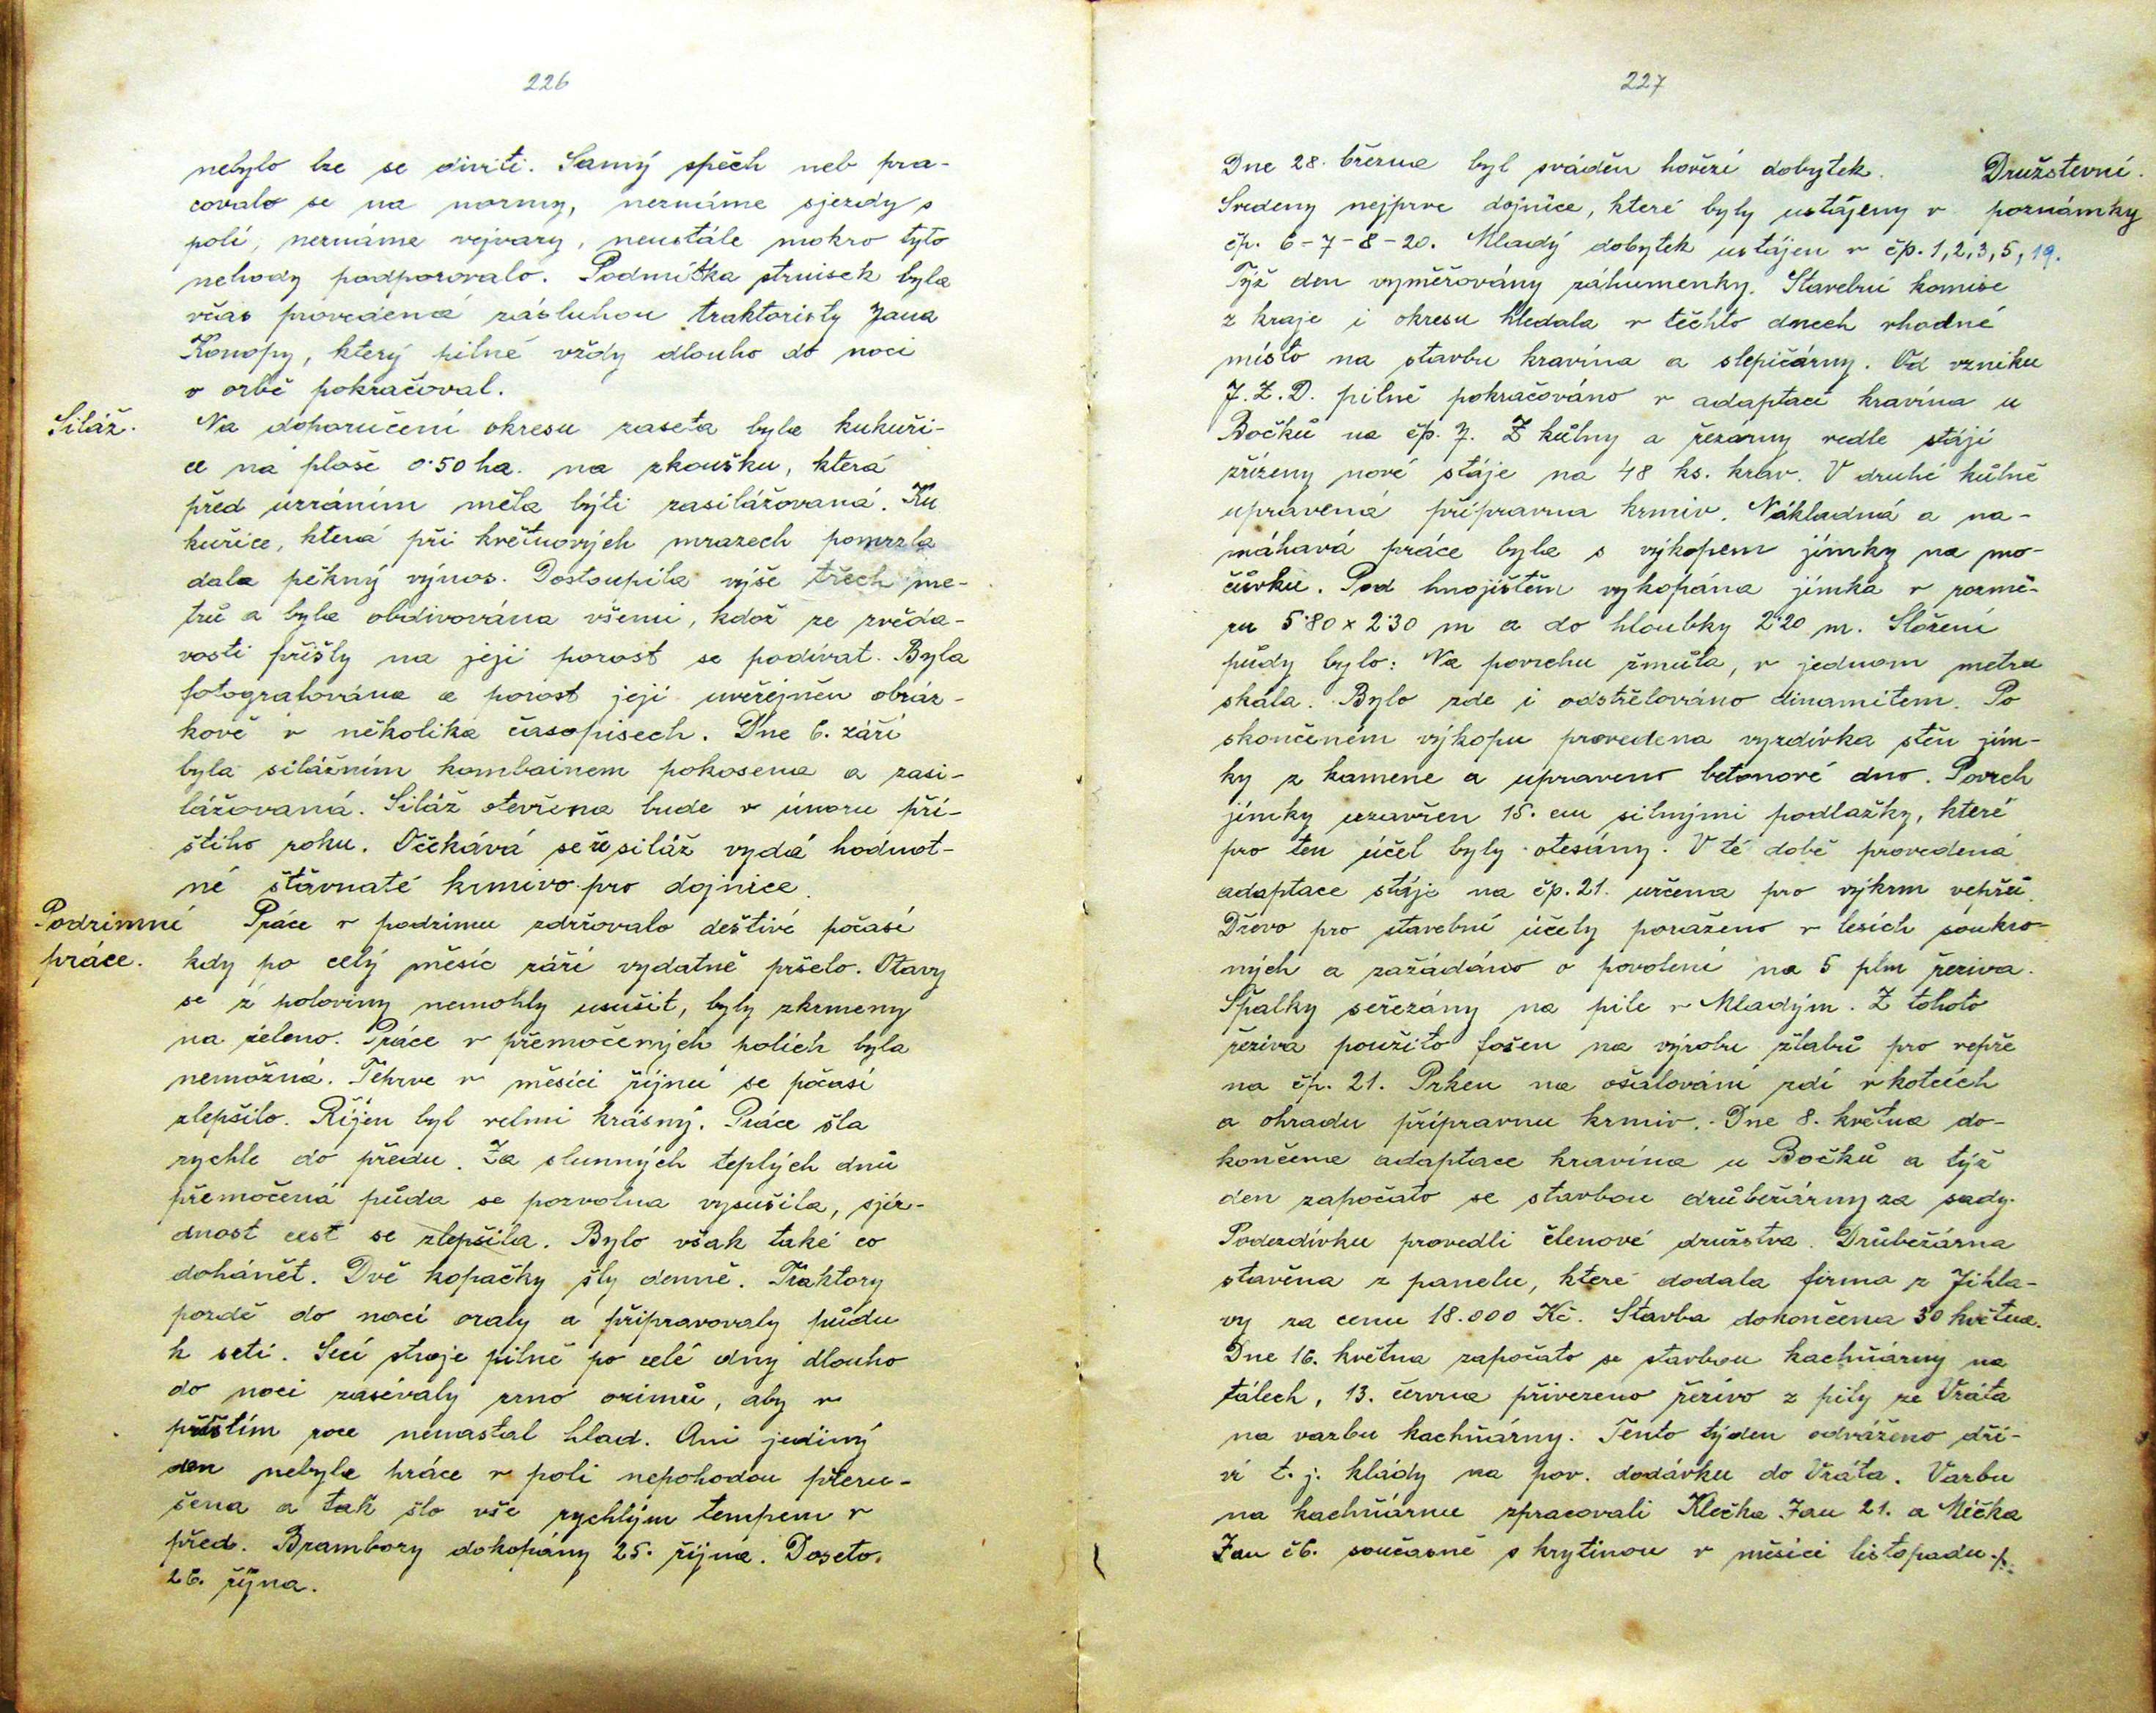 226
nebylo lze se diviti. Samý spěch neb pra-
covalo se na normy, neznáme sjezdy s
polí, neznáme vejvary, neustále mokro tyto
nehody podporovalo. Podmítka strnisek byla
včas provedená zásluhou traktoristy Jana
Konopy, který pilně vždy dlouho do noci
v orbě pokračoval.
Siláž. Na doporučení okresu zaseta byla kukuři-
ce na ploše 0.50 ha. na zkoušku, která
před uzráním měla býti zasilážovaná. Ku
kuřice, která při květnových mrazech pomrzla
dala pěkný výnos. Dostoupila výše třech me-
trů a byla obdivována všemi, kdož ze zvěda-
vosti přišly na její porost se podívat. Byla
fotografována a porost její uveřejněn obráz-
kově v několika časopisech. Dne 6. září
byla silážním kombainem pokosena a zasi-
lážovaná. Siláž otevřena bude v únoru pří-
štího roku. Očekává se že siláž vydá hodnot-
né šťavnaté krmivo pro dojnice.
Podzimní Práce v podzimu zdržovalo deštivé počasí
práce. kdy po celý měsíc září vydatně pršelo. Otavy
se z poloviny nemohly usušit, byly zkrmeny
na zeleno. Práce v přemočených polích byla
nemožná. Teprve v měsíci říjnu se počasí
zlepšilo. Říjen byl velmi krásný. Práce šla
rychle do předu. Za slunných teplých dnů
přemočená půda se pozvolna vysušila, sjíz-
dnost cest se zlepšila. Bylo však také co
dohánět. Dvě kopačky šly denně. Traktory
pozdě do noci oraly a připravovaly půdu
k setí. Secí stroje pilně po celé dny dlouho
do noci zasévaly zrno ozimů, aby v
příštím roce nenastal hlad. Ani jediný
den nebyla práce v poli nepohodou přeru-
šena a tak šlo vše rychlým tempem v
před. Brambory dokopány 25. října. Doseto.
26. října.
227
Dne 28. března byl sváděn hovězí dobytek. Družstevní.
Svedeny nejprve dojnice, které byly ustájeny v poznámky
čp. 6-7-8-20. Mladý dobytek ustájen v čp. 1,2,3,5,19.
Týž den vyměřovány záhumenky. Stavební komise
z kraje i okresu hledala v těchto dnech vhodné
místo na stavbu kravína a slepičárny. Od vzniku
J.Z.D. pilně pokračováno v adaptaci kravína u
Bočků na čp. 7. Z kůlny a řezárny vedle stájí
zřízeny nové stáje na 48 ks. krav. V druhé kůlně
upravená přípravna krmiv. Nákladná a na-
máhavá práce byla s výkopem jímky na mo-
čůvku. Pod hnojištěm vykopána jímka v rozmě-
ru 5.80 x 2.30 m a do hloubky 2.20 m. Složení
půdy bylo: Na povrchu žmůla, v jednom metru
skála. Bylo zde i odstřelováno dinamitem. Po
skončeném výkopu provedena vyzdívka stěn jím-
ky z kamene a upraveno betonové dno. Povrch
jímky uzavřen 15. cm silnými podlažky, které
pro ten účel byly otesány. V té době provedená
adaptace stáje na čp. 21. určena pro výkrm vepřů.
Dřevo pro stavební účely poraženo v lesích soukro-
mých a zažádáno o povolení na 5 plm řeziva.
Špalky seřezány na pile v Mladým. Z tohoto
řeziva použito fošen na výrobu žlabů pro vepře
na čp. 21. Prken na ošalování zdí v kotcích
a ohradu přípravnu krmiv. Dne 8. května do-
končena adaptace kravína u Bočků a týž
den započato se stavbou drůbežárny za sady.
Podezdívku provedli členové družstva. Drůbežárna
stavěna z panelu, které dodala firma z Jihla-
vy za cenu 18.000 Kč. Stavba dokončena 30 května.
Dne 16. května započato se stavbou kachňárny na
tálech, 13. června přivezeno řezivo z pily ze Vráta
na vazbu kachňárny. Tento týden odváženo dří-
ví t. j. klády na pov. dodávku do Vráta. Vazbu
na kachňárnu zpracovali Klečka Jan 21. a Mička
Jan č6. současně s krytinou v měsíci listopadu.